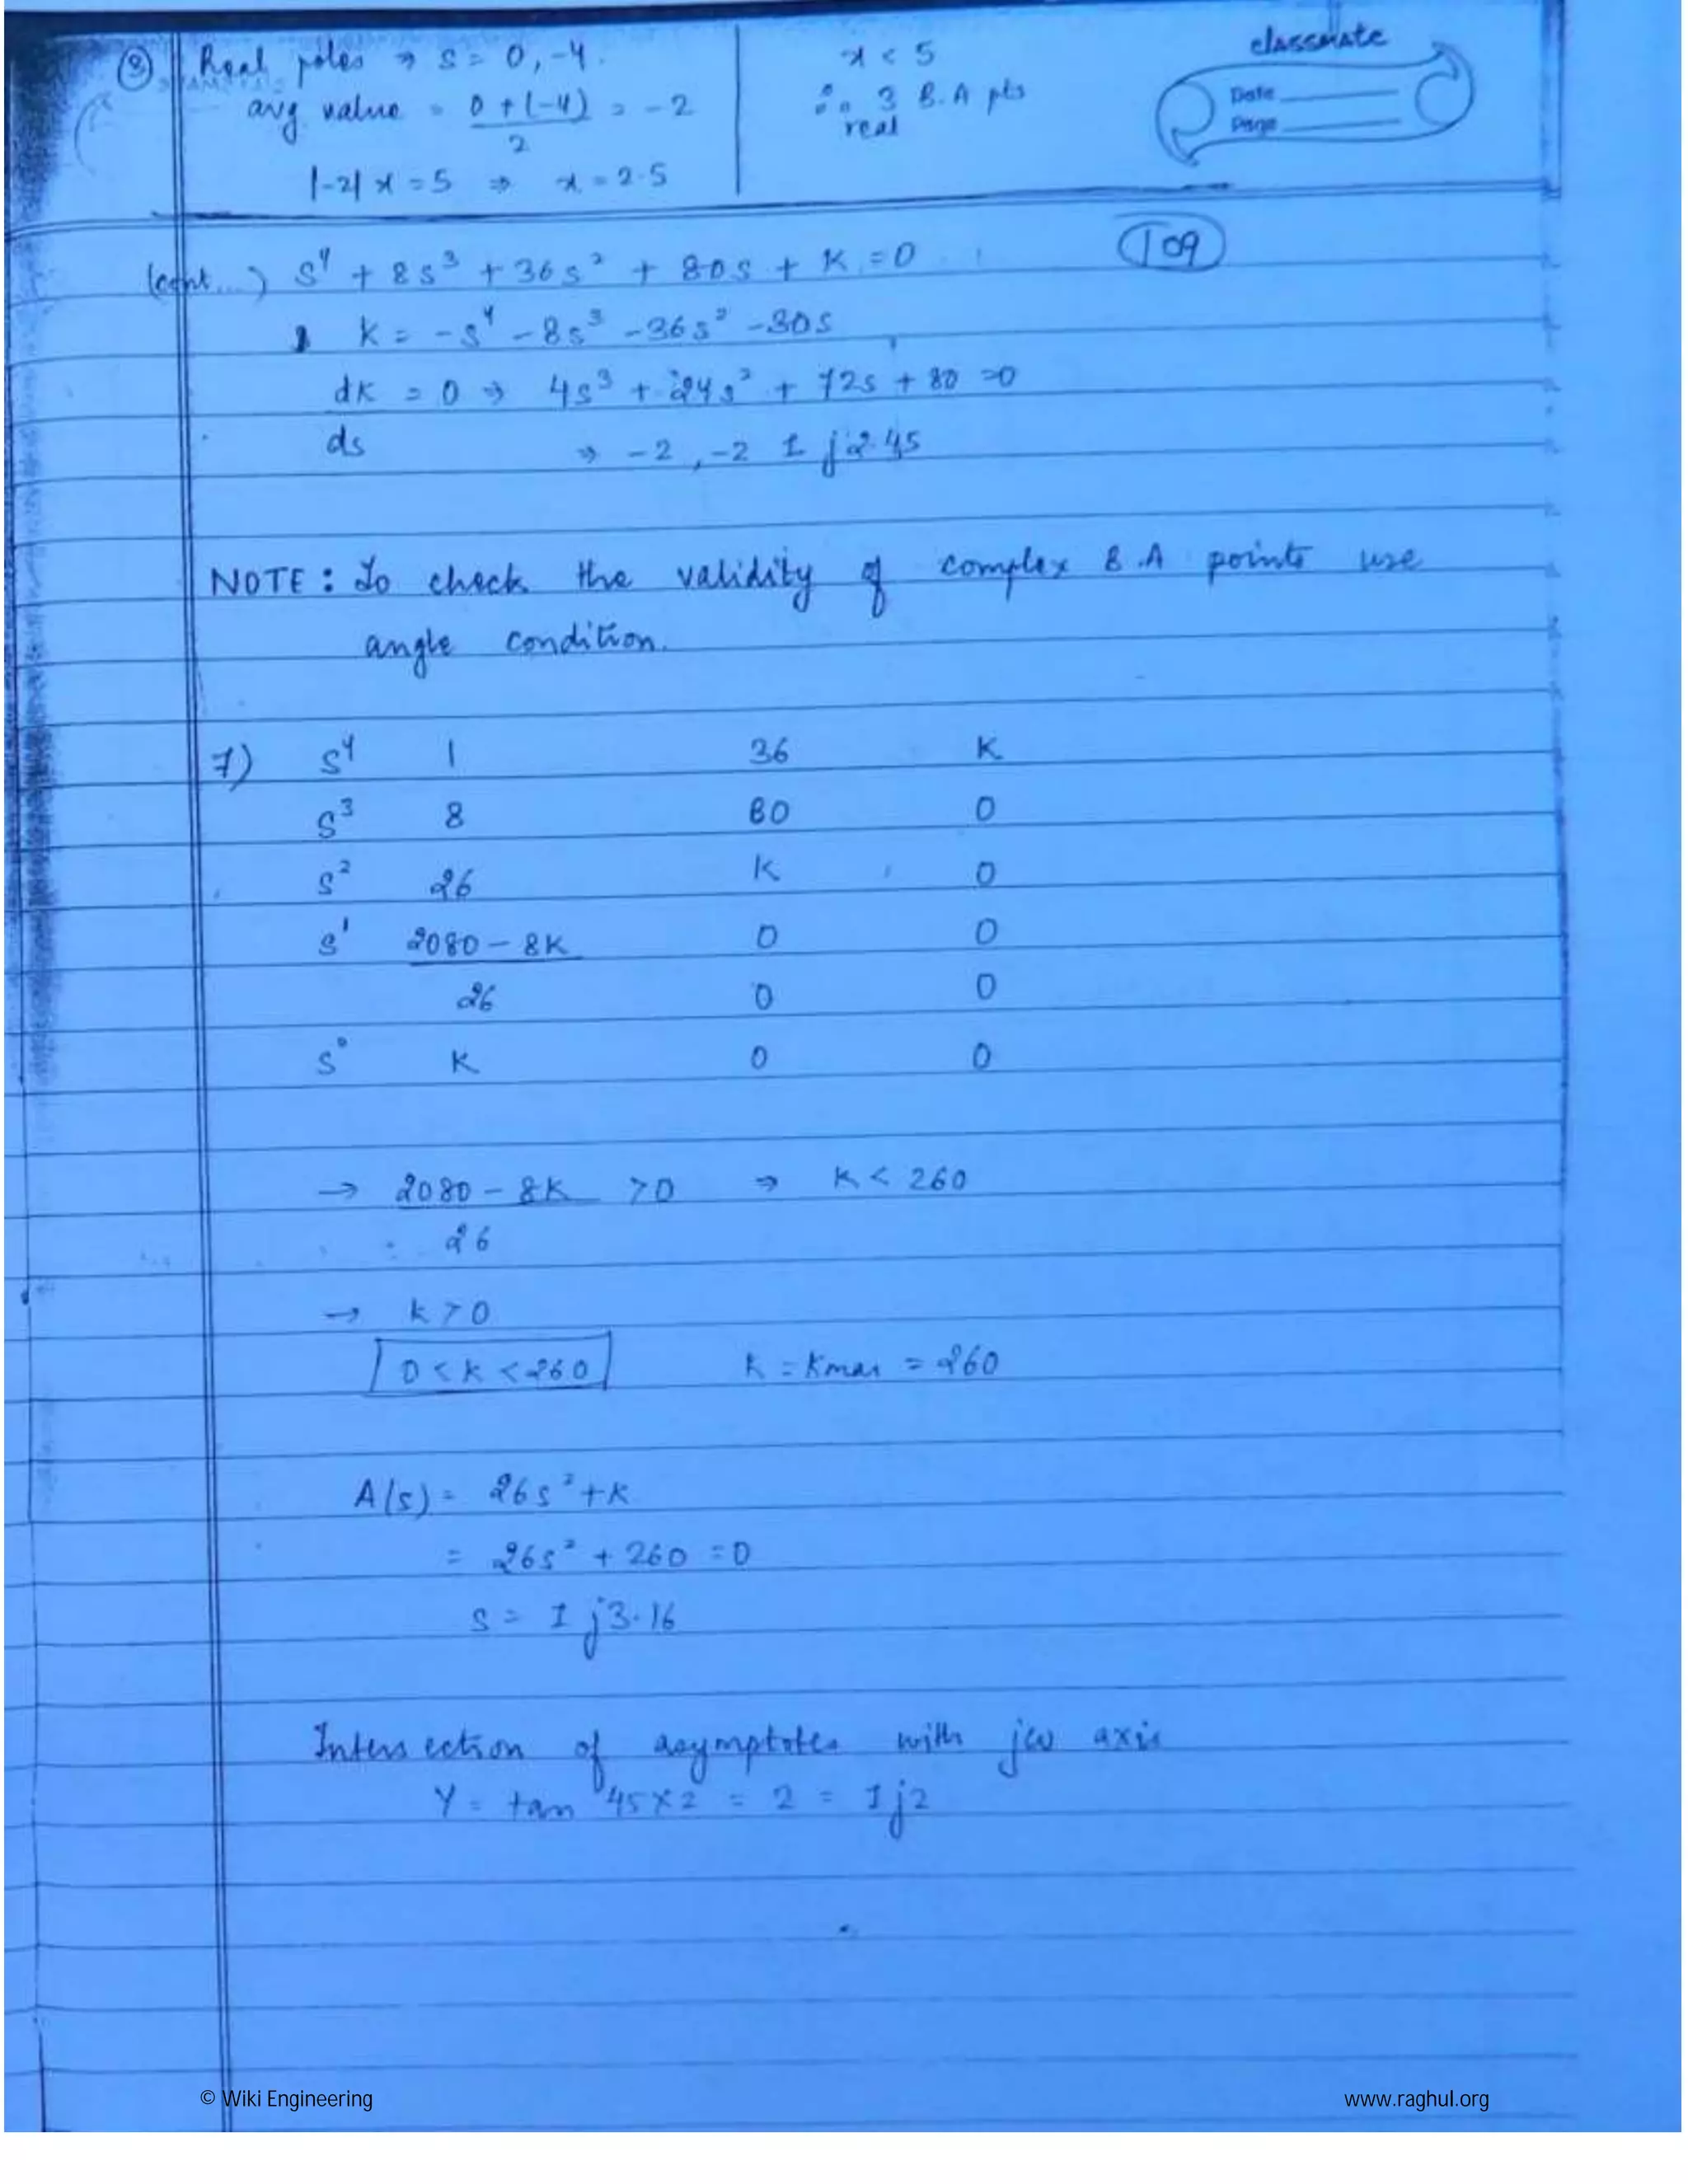 ③ Real poles ⇒ s = 0, -4.
avg value = 0 + (-4) / 2 = -2
|-2| x = 5 ⇒ x = 2.5
x < 5
∴ 3 B.A pts
real
classmate
Date
Page
109
(cont...) s⁴ + 8s³ + 36s² + 80s + K = 0
K = -s⁴ - 8s³ - 36s² - 80s
dK/ds = 0 ⇒ 4s³ + 24s² + 72s + 80 = 0
⇒ -2, -2 ± j2.45
NOTE : To check the validity of complex B.A points use
angle condition.
7) s⁴ 1 36 K
s³ 8 80 0
s² 26 K 0
s¹ 2080 - 8K 0 0
26 0 0
s⁰ K 0 0
→ 2080 - 8K / 26 > 0 ⇒ K < 260
→ K > 0
0 < K < 260 K = Kmax = 260
A(s) = 26s² + K
= 26s² + 260 = 0
s = ± j3.16
Intersection of asymptotes with jω axis
Y = tan 45 × 2 = 2 = ± j2
© Wiki Engineering
www.raghul.org